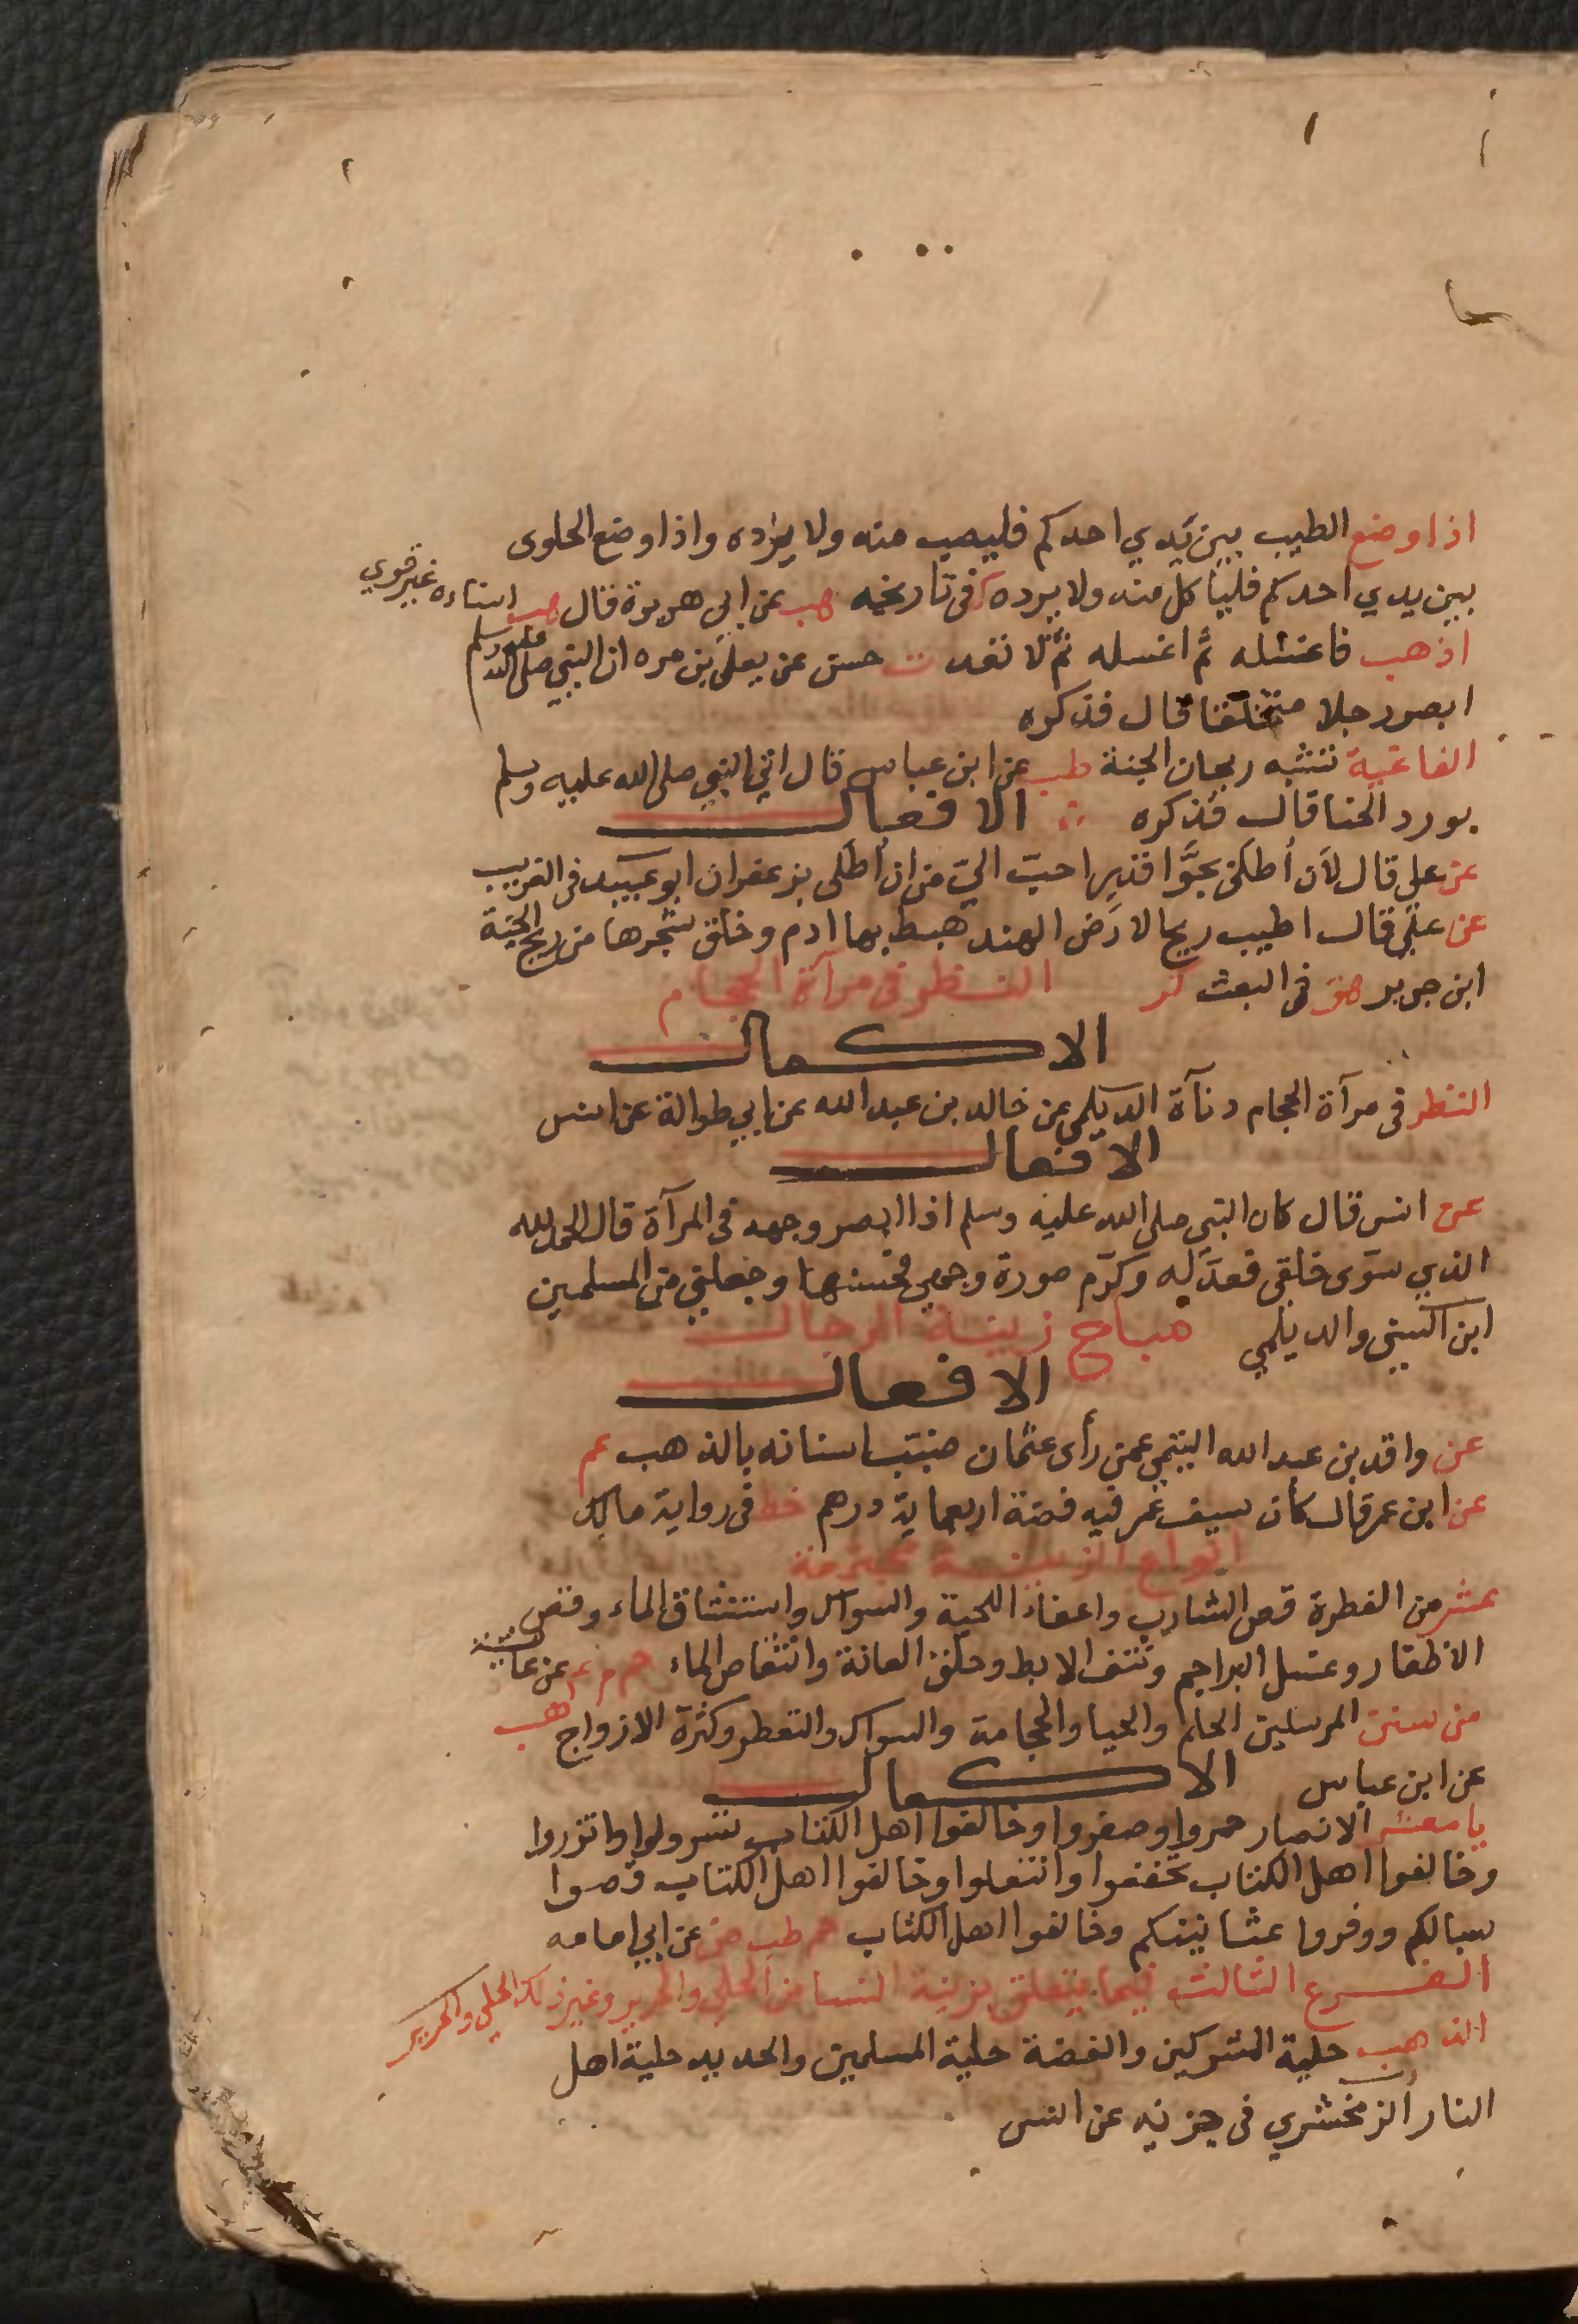 اذا وضع الطيب بين يدي احدكم فليصب منه ولا يرده واذا وضع الحلوى
بين يدي احدكم فلياكل منه ولا يرده ك في تاريخه هب عن ابي هريرة قال هب اسناده غير قوي
اذهب فاغسله ثم اغسله ثم لا تعد ت حسن عن يعلى بن مره ان النبي صلى الله عليه وسلم
ابصر رجلا متخلقا قال فذكره
الفاغية تشبه ريحان الجنة طب عن ابن عباس قال اتي النبي صلى الله عليه وسلم
بورد الحنا قال فذكره الافعال
عن علي قال لأن أطلى بجوا قذير احب الي من ان أطلى بزعفران ابو عبيد في الغريب
عن علي قال اطيب ريح الارض الهند هبط بها ادم وخلق شجرها من ريح الجنة
ابن جرير هق في البعث كر النظر في مرآة الحجام
الاكمال
النظر في مرآة الحجام دنآة الديلمي عن خالد بن عبد الله عن ابي طوالة عن انس
الافعال
عن انس قال كان النبي صلى الله عليه وسلم اذا ابصر وجهه في المرآة قال الحمد لله
الذي سوى خلقي فعدله وكرم صورة وجهي فحسنها وجعلني من المسلمين
ابن السني والديلمي مباح زينة الرجال
الافعال
عن واقد بن عبد الله التيمي عمن رأى عثمان ضبب اسنانه بالذهب عم
عن ابن عمر قال كان سيف عمر فيه فضة اربعماية درهم خط في رواية مالك
انواع الزينة مجتمعة
عشر من الفطرة قص الشارب واعفاء اللحية والسواك واستنشاق الماء وقص
الاظفار وغسل البراجم ونتف الابط وحلق العانة وانتقاص الماء حم م عن عائشة
من سنن المرسلين الحلم والحيا والحجامة والسواك والتعطر وكثرة الازواج هب
عن ابن عباس الاكمال
يا معشر الانصار حمروا وصفروا وخالفوا اهل الكتاب تسرولوا واتزروا
وخالفوا اهل الكتاب تخففوا وانتعلوا وخالفوا اهل الكتاب قصوا
سبالكم ووفروا عثانينكم وخالفوا اهل الكتاب حم طب ض عن ابي امامه
الفرع الثالث فيما يتعلق بزينة النسا من الحلي والحرير وغير ذلك الحلي والحرير
الذهب حلية المشركين والفضة حلية المسلمين والحديد حلية اهل
النار الزمخشري في جزئه عن انس